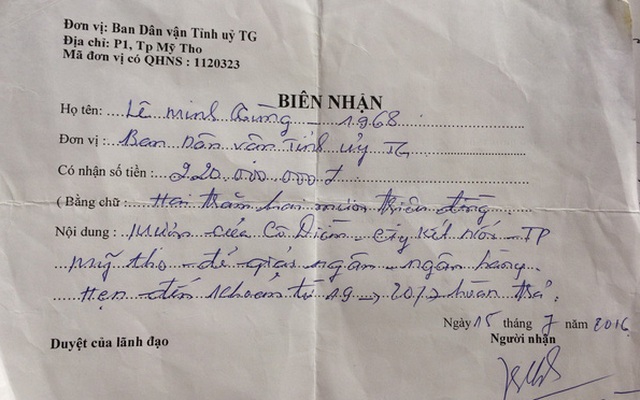 Đơn vị: Ban Dân vận Tỉnh uỷ TG
Địa chỉ: P1, Tp Mỹ Tho
Mã đơn vị có QHNS : 1120323
BIÊN NHẬN
Họ tên: Lê Minh Hùng - 1968
Đơn vị : Ban Dân vận Tỉnh ủy TG
Có nhận số tiền : 220.000.000đ
( Bằng chữ : Hai trăm hai mươi triệu đồng
Nội dung : Mượn của Cô Diễm - Cty Kết Nối - TP
Mỹ Tho - để giải ngân - ngân hàng
Hẹn đến khoản từ 19 → 20/7 hoàn trả.
Ngày 15 tháng 7 năm 2016
Duyệt của lãnh đạo
Người nhận